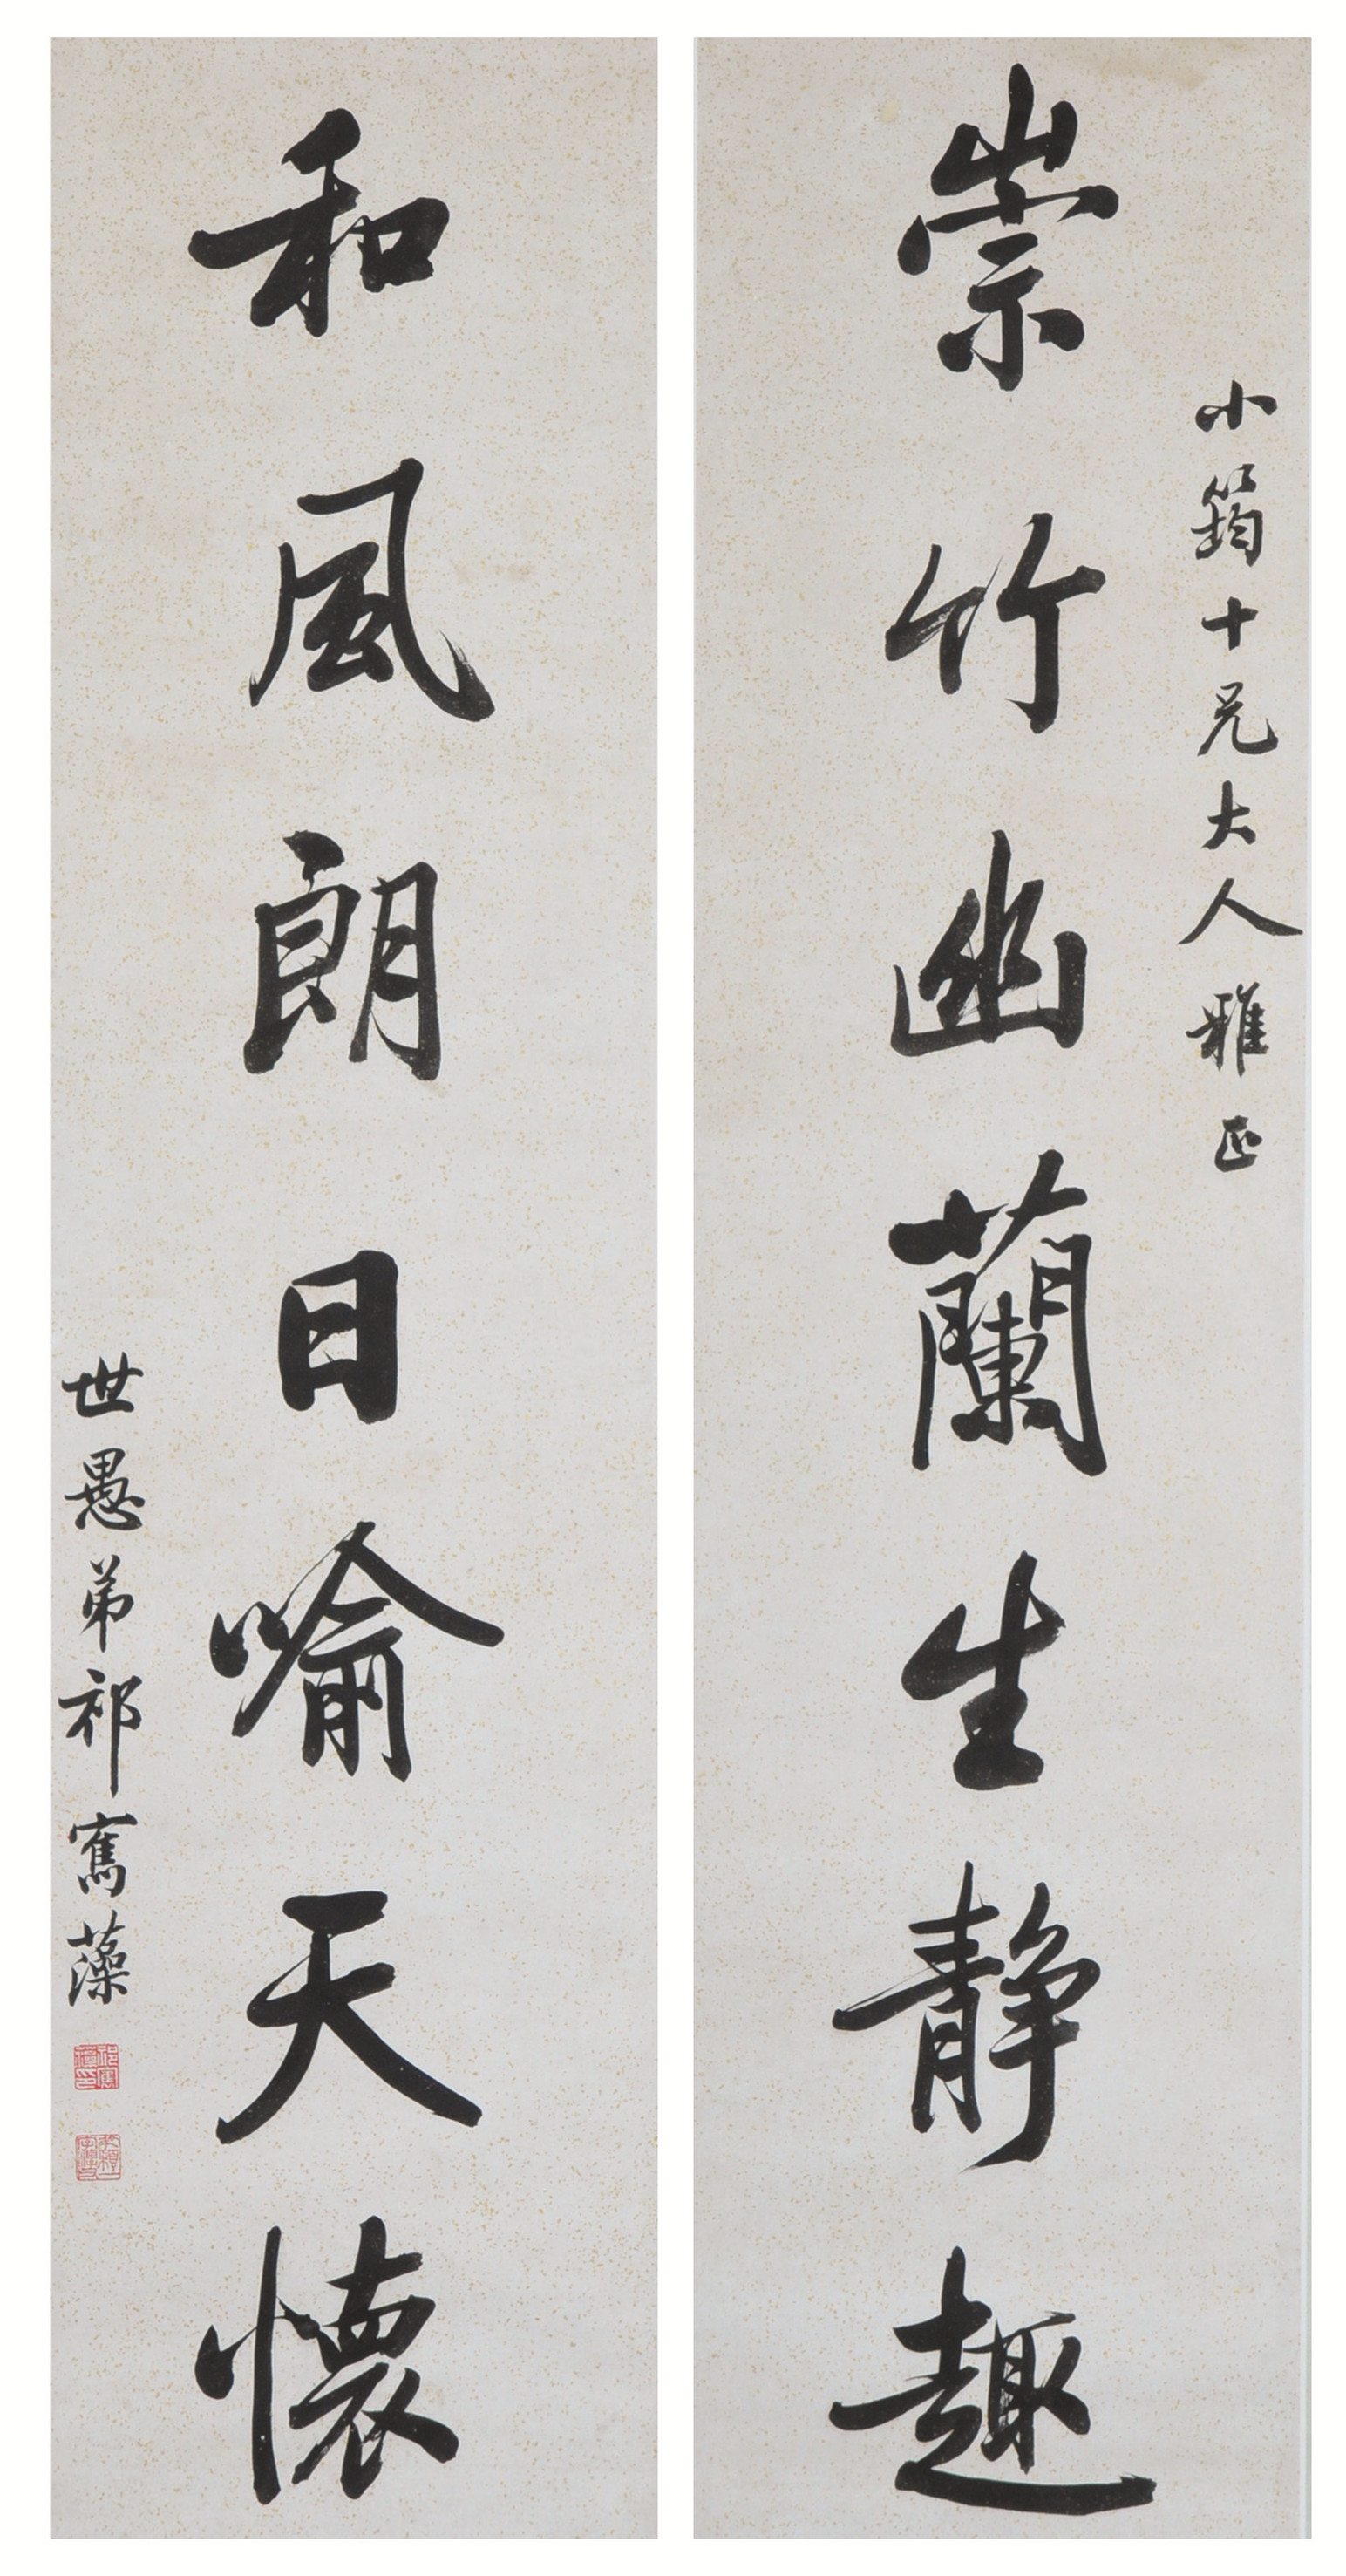 小筠十兄大人雅正
崇竹幽蘭生静趣
和風朗日喻天懷
世愚弟祁寯藻